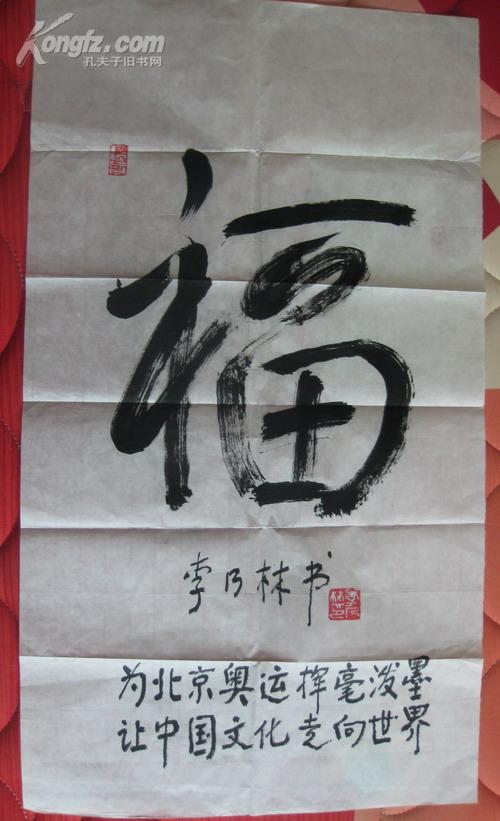 Kongfz.com
孔夫子旧书网
福
李乃林书
为北京奥运挥毫泼墨
让中国文化走向世界